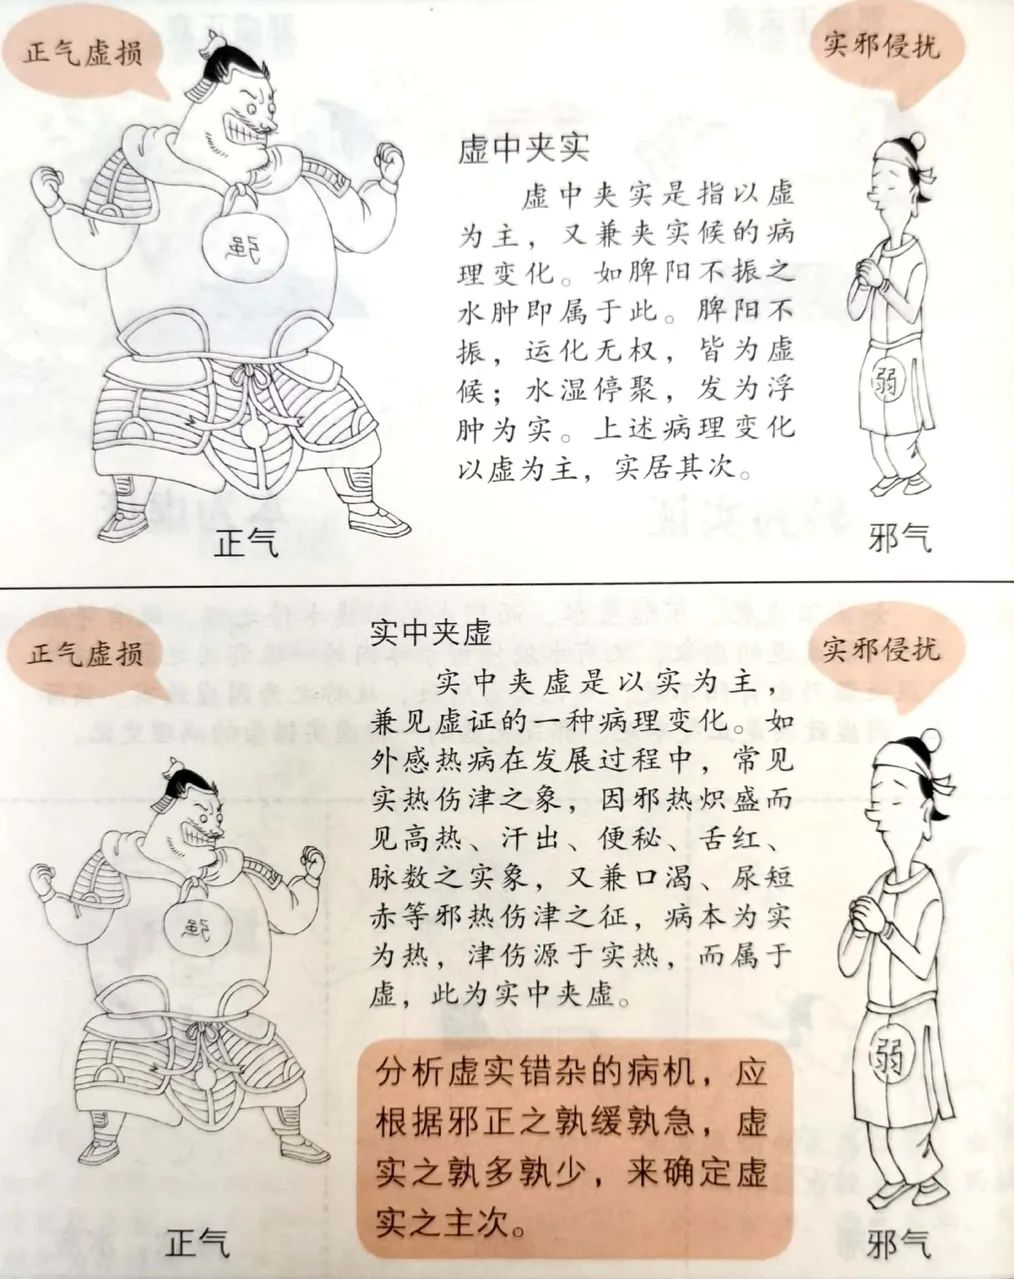 正气虚损
实邪侵扰
虚中夹实
虚中夹实是指以虚
为主，又兼夹实候的病
理变化。如脾阳不振之
水肿即属于此。脾阳不
振，运化无权，皆为虚
候；水湿停聚，发为浮
肿为实。上述病理变化
以虚为主，实居其次。
强
弱
正气
邪气
正气虚损
实邪侵扰
实中夹虚
实中夹虚是以实为主，
兼见虚证的一种病理变化。如
外感热病在发展过程中，常见
实热伤津之象，因邪热炽盛而
见高热、汗出、便秘、舌红、
脉数之实象，又兼口渴、尿短
赤等邪热伤津之征，病本为实
为热，津伤源于实热，而属于
虚，此为实中夹虚。
强
弱
分析虚实错杂的病机，应
根据邪正之孰缓孰急，虚
实之孰多孰少，来确定虚
实之主次。
正气
邪气